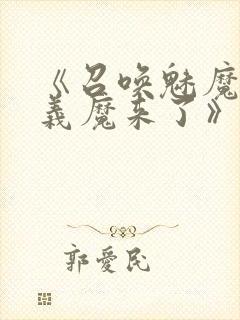 《召唤魅魔
義魔来了》
郭愛民